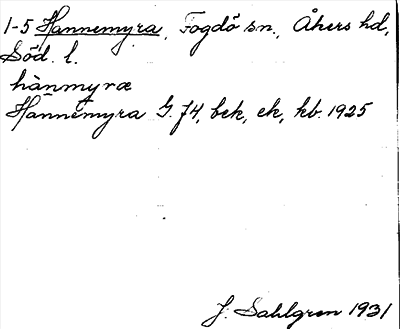 1-5 Hannemyra, Fogdö sn., Åkers hd,
Söd. l.
hànmyræ
Hannemyra G. J4, bek, ek, kb. 1925
J. Sahlgren 1931